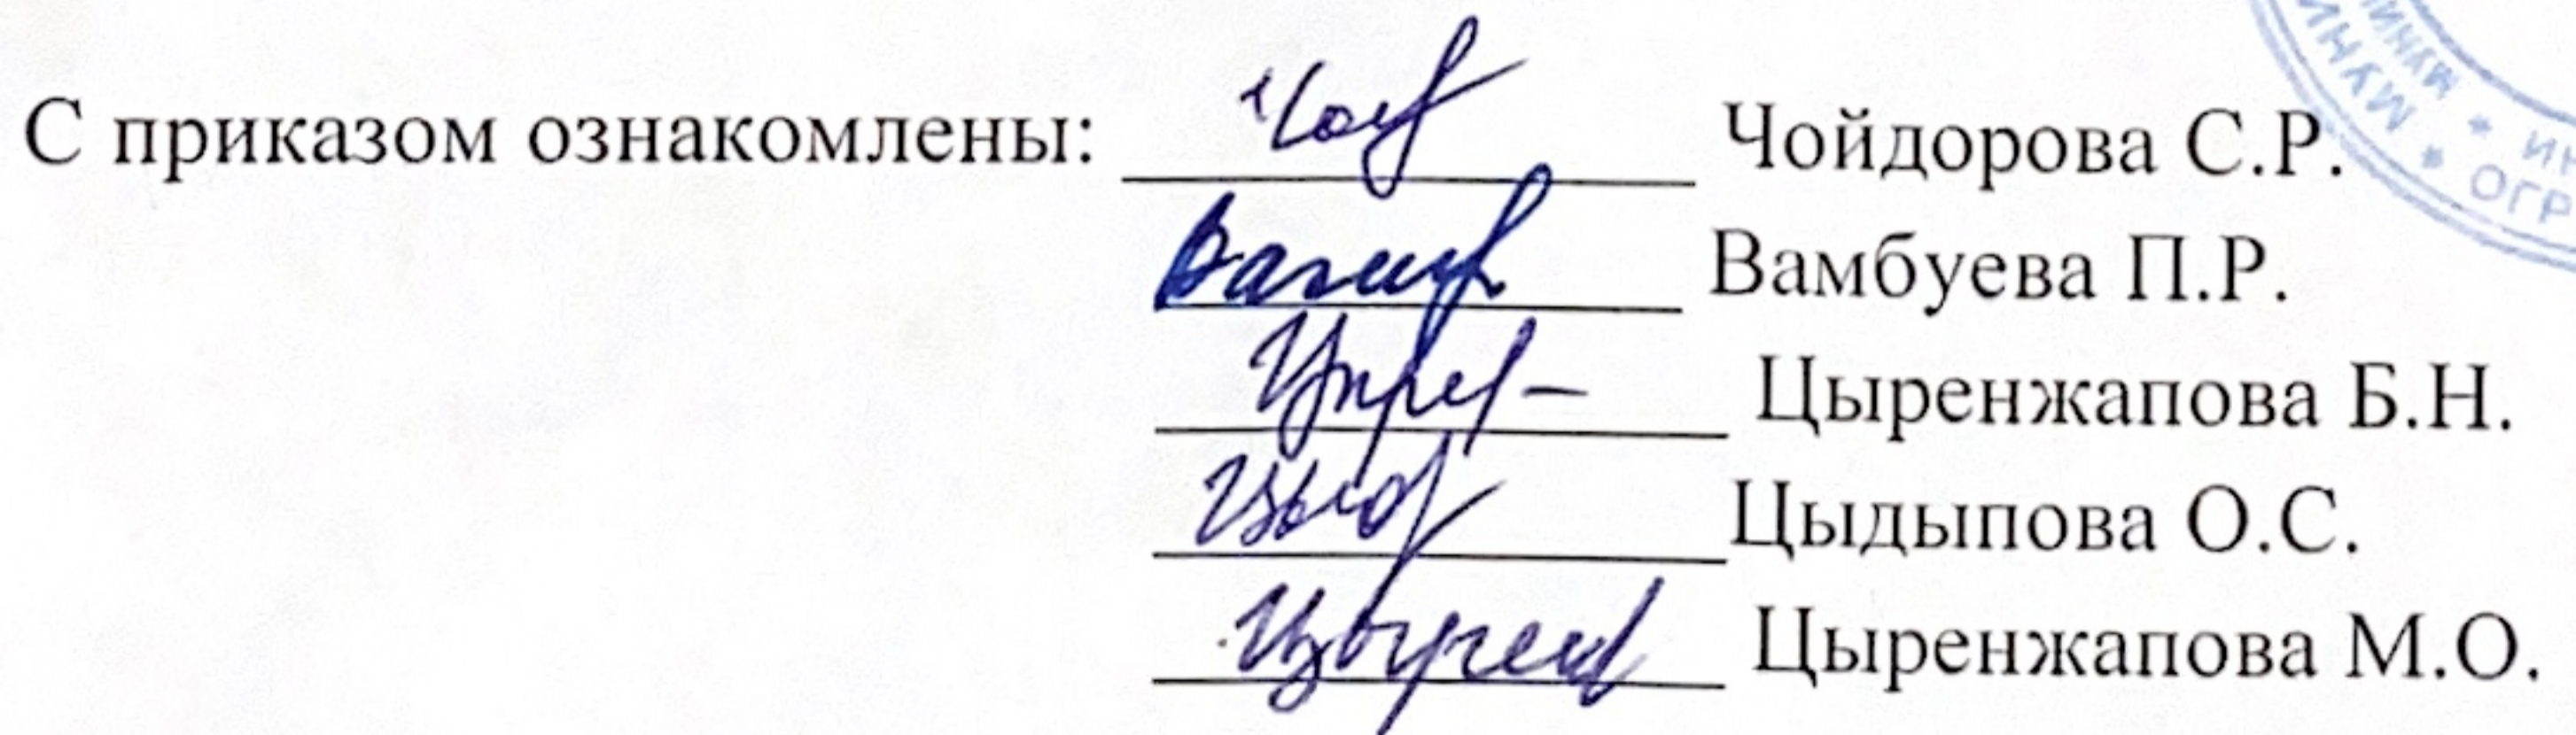 С приказом ознакомлены: Чойдорова С.Р.
Вамбуева П.Р.
Цыренжапова Б.Н.
Цыдыпова О.С.
Цыренжапова М.О.
ОГР